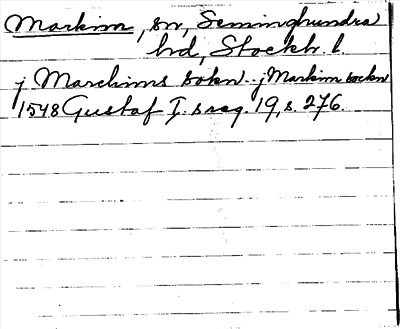 Markim, sn, Seminghundra
hd, Stockh. l.
j Marchims sokn.. j Markim sockn
1548 Gustaf I:s reg. 19, s. 276.